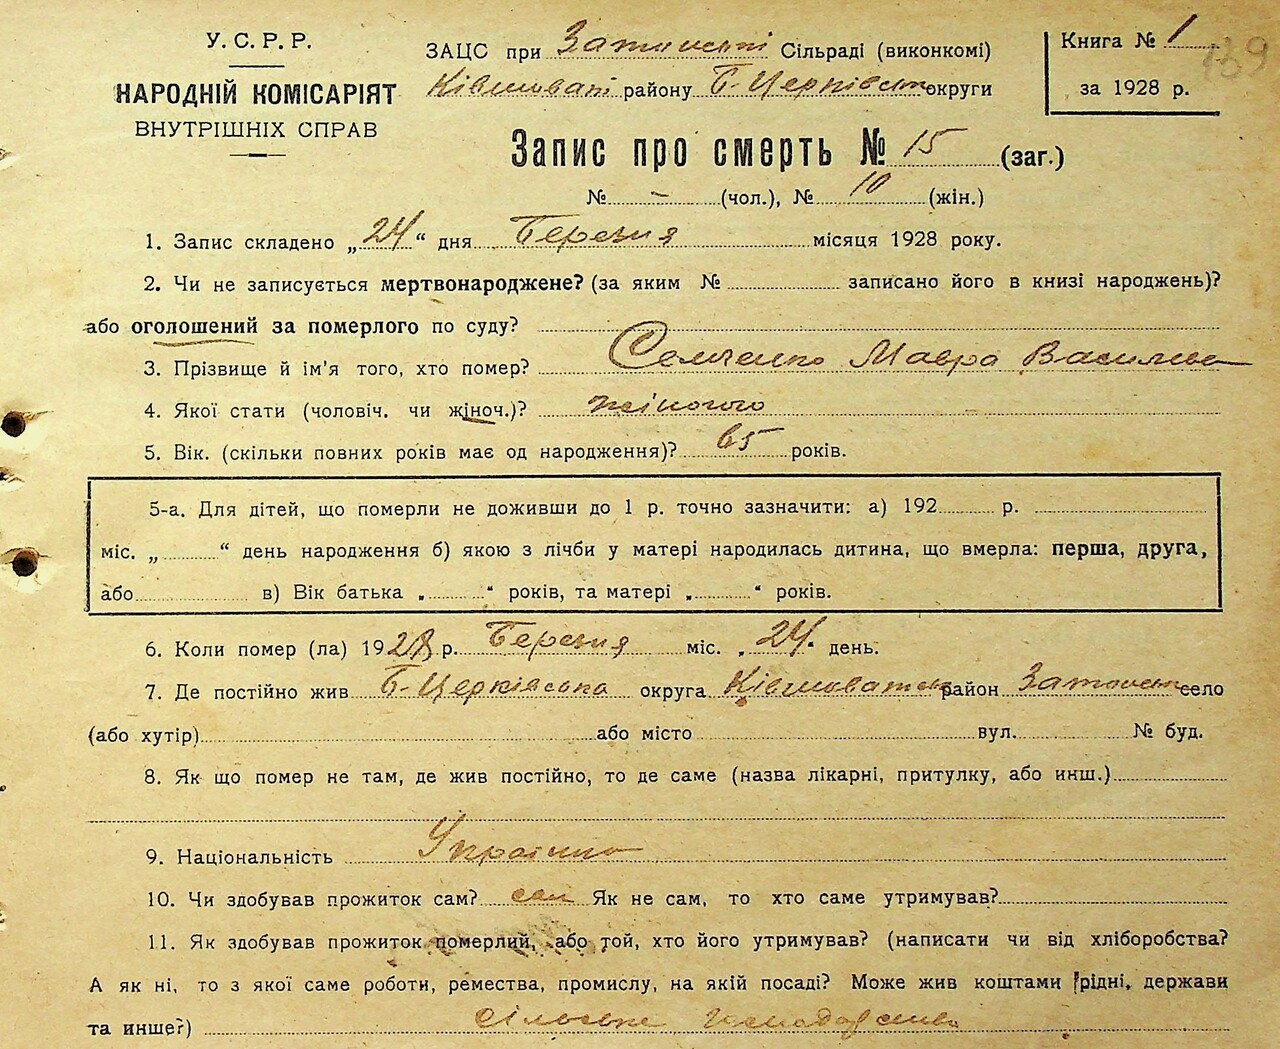 У. С. Р. Р.
НАРОДНІЙ КОМІСАРІЯТ
ВНУТРІШНІХ СПРАВ
ЗАЦС при Затонські Сільраді (виконкомі)
Ківшоваті району Б-Церківськ округи
Книга № 1
139
за 1928 р.
Запис про смерть № 15 (заг.)
№ - (чол.), № 10 (жін.)
1. Запис складено „24“ дня Березня місяця 1928 року.
2. Чи не записується мертвонароджене? (за яким № записано його в книзі народжень)?
або оголошений за померлого по суду?
3. Прізвище й ім'я того, хто помер? Семченко Мавра Василівна
4. Якої стати (чоловіч. чи жіноч.)? жіночого
5. Вік. (скільки повних років має од народження)? 65 років.
5-а. Для дітей, що померли не доживши до 1 р. точно зазначити: а) 192 р.
міс. „ “ день народження б) якою з лічби у матері народилась дитина, що вмерла: перша, друга,
або в) Вік батька „ “ років, та матері „ “ років.
6. Коли помер (ла) 1928 р. Березня міс. „24“ день.
7. Де постійно жив Б-Церківська округа Ківшоватськ район Затонськ село
(або хутір) або місто вул. № буд.
8. Як що помер не там, де жив постійно, то де саме (назва лікарні, притулку, або инш.)
9. Національність Українка
10. Чи здобував прожиток сам? сам Як не сам, то хто саме утримував?
11. Як здобував прожиток померлий, або той, хто його утримував? (написати чи від хліборобства?
А як ні, то з якої саме роботи, ремества, промислу, на якій посаді? Може жив коштами рідні, держави
та инше?) сільське господарство